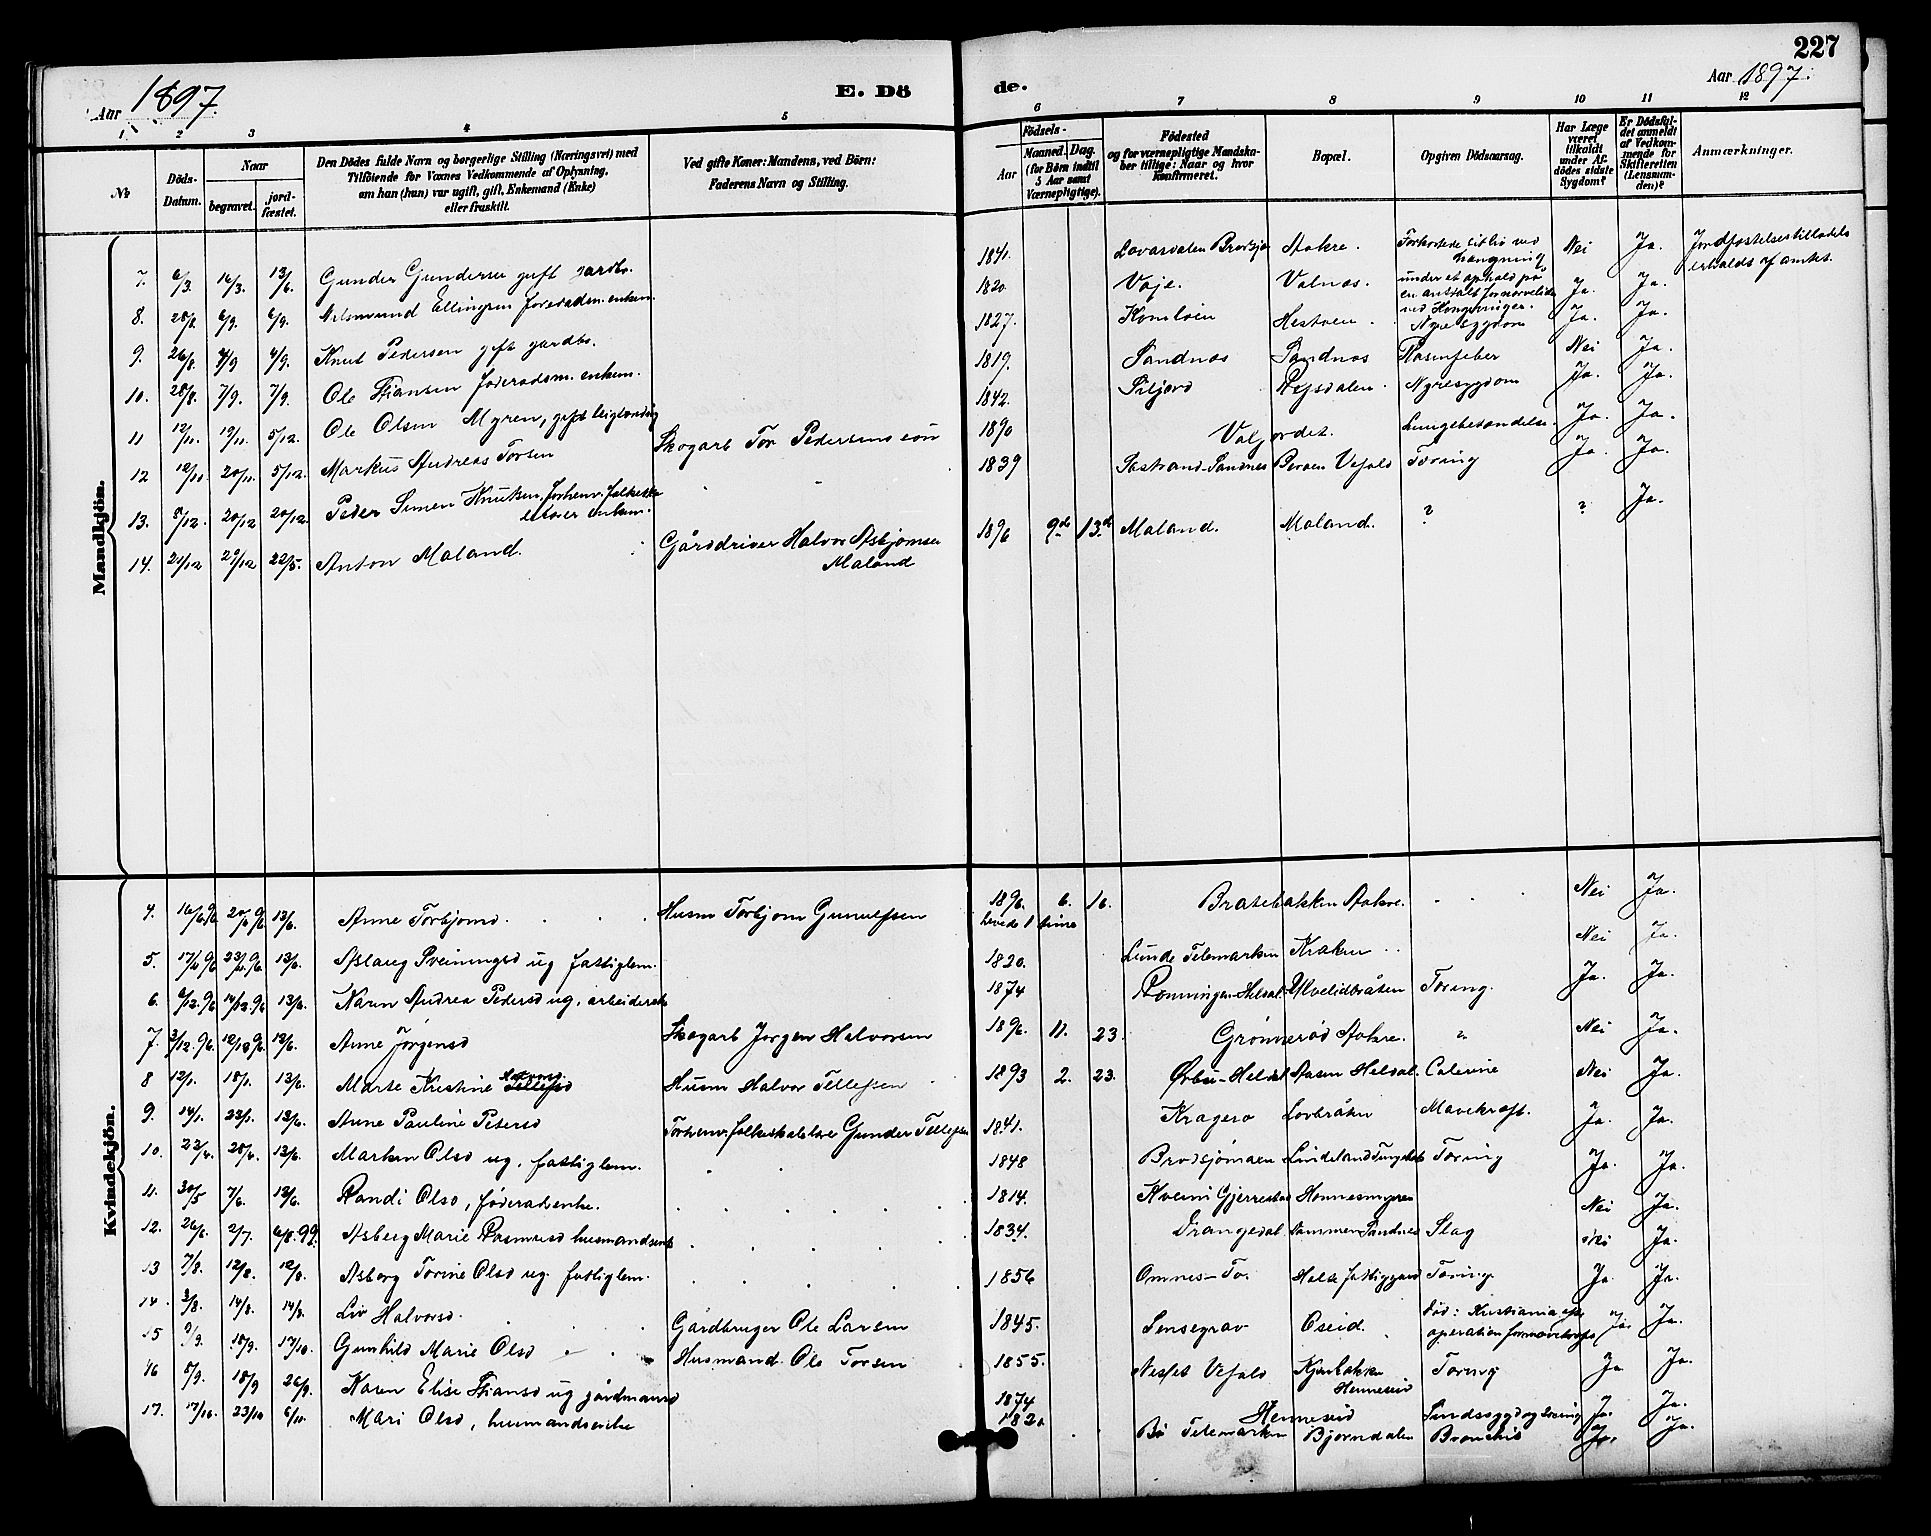 227
Aar 1897.
E. Dö
de.
Aar 1897.
1 2 3 4 5 6 7 8 9 10 11 12
№
Döds-Datum.
Naar
begravet.
jord-fæstet.
Den Dödes fulde Navn og borgerlige Stilling (Næringsvei) med
Tilföiende for Voxnes Vedkommende af Oplysning,
om han (hun) var ugift, gift, Enkemand (Enke)
eller fraskilt.
Ved gifte Koner: Mandens, ved Börn:
Faderens Navn og Stilling.
Födsels-
Aar
Maaned. Dag.
(for Börn indtil
5 Aar samt
Værnepligtige).
Födested
og for værnepligtige Mandska-
ber tillige: Naar og hvor
konfirmeret.
Bopæl.
Opgiven Dödsaarsag.
Har Læge
været
tilkaldt
under Af-
dödes sidste
Sygdom?
Er Dödsfal-
det anmeldt
af Vedkom-
mende for
Skifteretten
(Lensman-
den)?
Anmærkninger.
Mandkjön.
7. 6/3. 16/3. 13/6. Gunder Gundersen gift gardbr. 1841. Lovasdalen Brødsjø Aakre. Forkortede sit liv ved hængning under et ophold på en anstalt for nervelidende ved Kongsvinger. Nei Ja. Jordfæstelsestilladelse erholdt af amtet.
8. 28/8. 6/9. 6/9. Ellingsen føderaadsm. enkem. 1820. Vaje. Valnæs. Ja. Ja.
9. 26/8. 4/9 4/9. Knut Pedersen gift gardbr. 1827. Hestøen. Nyresygdom Ja. Ja.
10. 28/8. 7/9. 7/9. Ole Stiansen føderaadsm. enkem. 1819. Sandnæs Sandnæs Rosenfeber Nei Ja.
11 12/11. 19/11. 5/12. Ole Olsen Myren, gift leiglænding 1842. Siljord Nyresygdom Ja. Ja.
12 12/11. 20/11. 5/12. Markus Andreas Torsen Skogarb Tor Pedersens søn 1890 Valjordet. Lungebetændelse. Ja. Ja.
13. 8/12. 20/12 20/12. Peder Simen Knutsen. forhenv. folkeskolelærer enkem. 1839 Sandnes Vefald Tæring Ja. Ja.
14. 21/12 29/12 22/5. Anton Maland. Gårddriver Halvor Asbjørnsen Maland 1896 9de 13de Maland. Maland. ? ? Ja.
Kvindekjön.
4. 16/6 96 20/6 96 13/6. Anne Torbjørnsd. Husm Torbjørn Gunulfsen 1896. 6. 16. Bratebakken Aakre. Nei Ja.
levede 1 time
5. 17/6 96 23/6 96. 13/6. Aslaug Sveinungsd ug fattiglem. 1820. Lunde Telemarken Kråken Nei Ja.
6. 6/12.96 14/12.96 13/6. Karen Andrea Pedersd ug. arbeiderske 1874 Rønningen-Helsal Ulvelidbråten Tæring. Ja. Ja.
7. 3/12.96. 12/12 96. 13/6. Anne Jørgensd Skogarb Jørgen Halvorsen 1896. 11. 23. Grønnerød Aakre. " Nei Ja.
8 12/1. 18/1. 13/6. Marte Kristine Halvorsd. Husm Halvor Tellefsen 1893 2. 23. Ørbu-Helsal Aasen Helsal. Colerine Nei Ja.
9. 14/1. 23/1. 13/6. Anne Pauline Petersd Forhenv. folkeskolelærer Gunder Tellefsen 1841. Kragerø Lovbråten Mavekræft. Ja. Ja.
10. 23/4. 28/4. 13/6. Maren Olsd ug. fattiglem. 1848 Brødsjømoen Lindeland Tæring Ja. Ja.
11. 30/5 7/6. 13/6. Randi Olsd, føderadsenke. 1814. Kveini Gjerrestad Hønnesmyren Nei Ja.
12. 26/6. 2/7. 6/8.99. Asberg Marie Rasmusd husmandsenke 1834. Drangedal. Sandnes Slag Nei Ja.
13 7/8. 12/8. 12/8. Asborg Torine Olsd ug. fattiglem. 1856 Omnes-Tor Holte fattiggaard Tæring. Ja. Ja.
14. 3/8. 14/8. 14/8. Liv Halvorsd. Gårdbruger Ole Larsen 1845. Sensegrav Oseid. død i Kristiania efter operation for mavekræft Ja. Ja.
15 9/9. 18/9. 17/10. Gunhild Marie Olsd Husmand. Ole Torsen 1855. Vefald Kjenbakken Henneseid Tæring Ja Ja.
16 8/9. 18/9 26/9. Karen Elise Stiansd ug gårdmansd 1874 Henneseid Sindssygd og tæring Ja. Ja.
17. 17/10. 23/10 6/11. Mari Olsd, husmandsenke 1821 Bø Telemarken Bjørndalen Bronchis Ja. Ja.